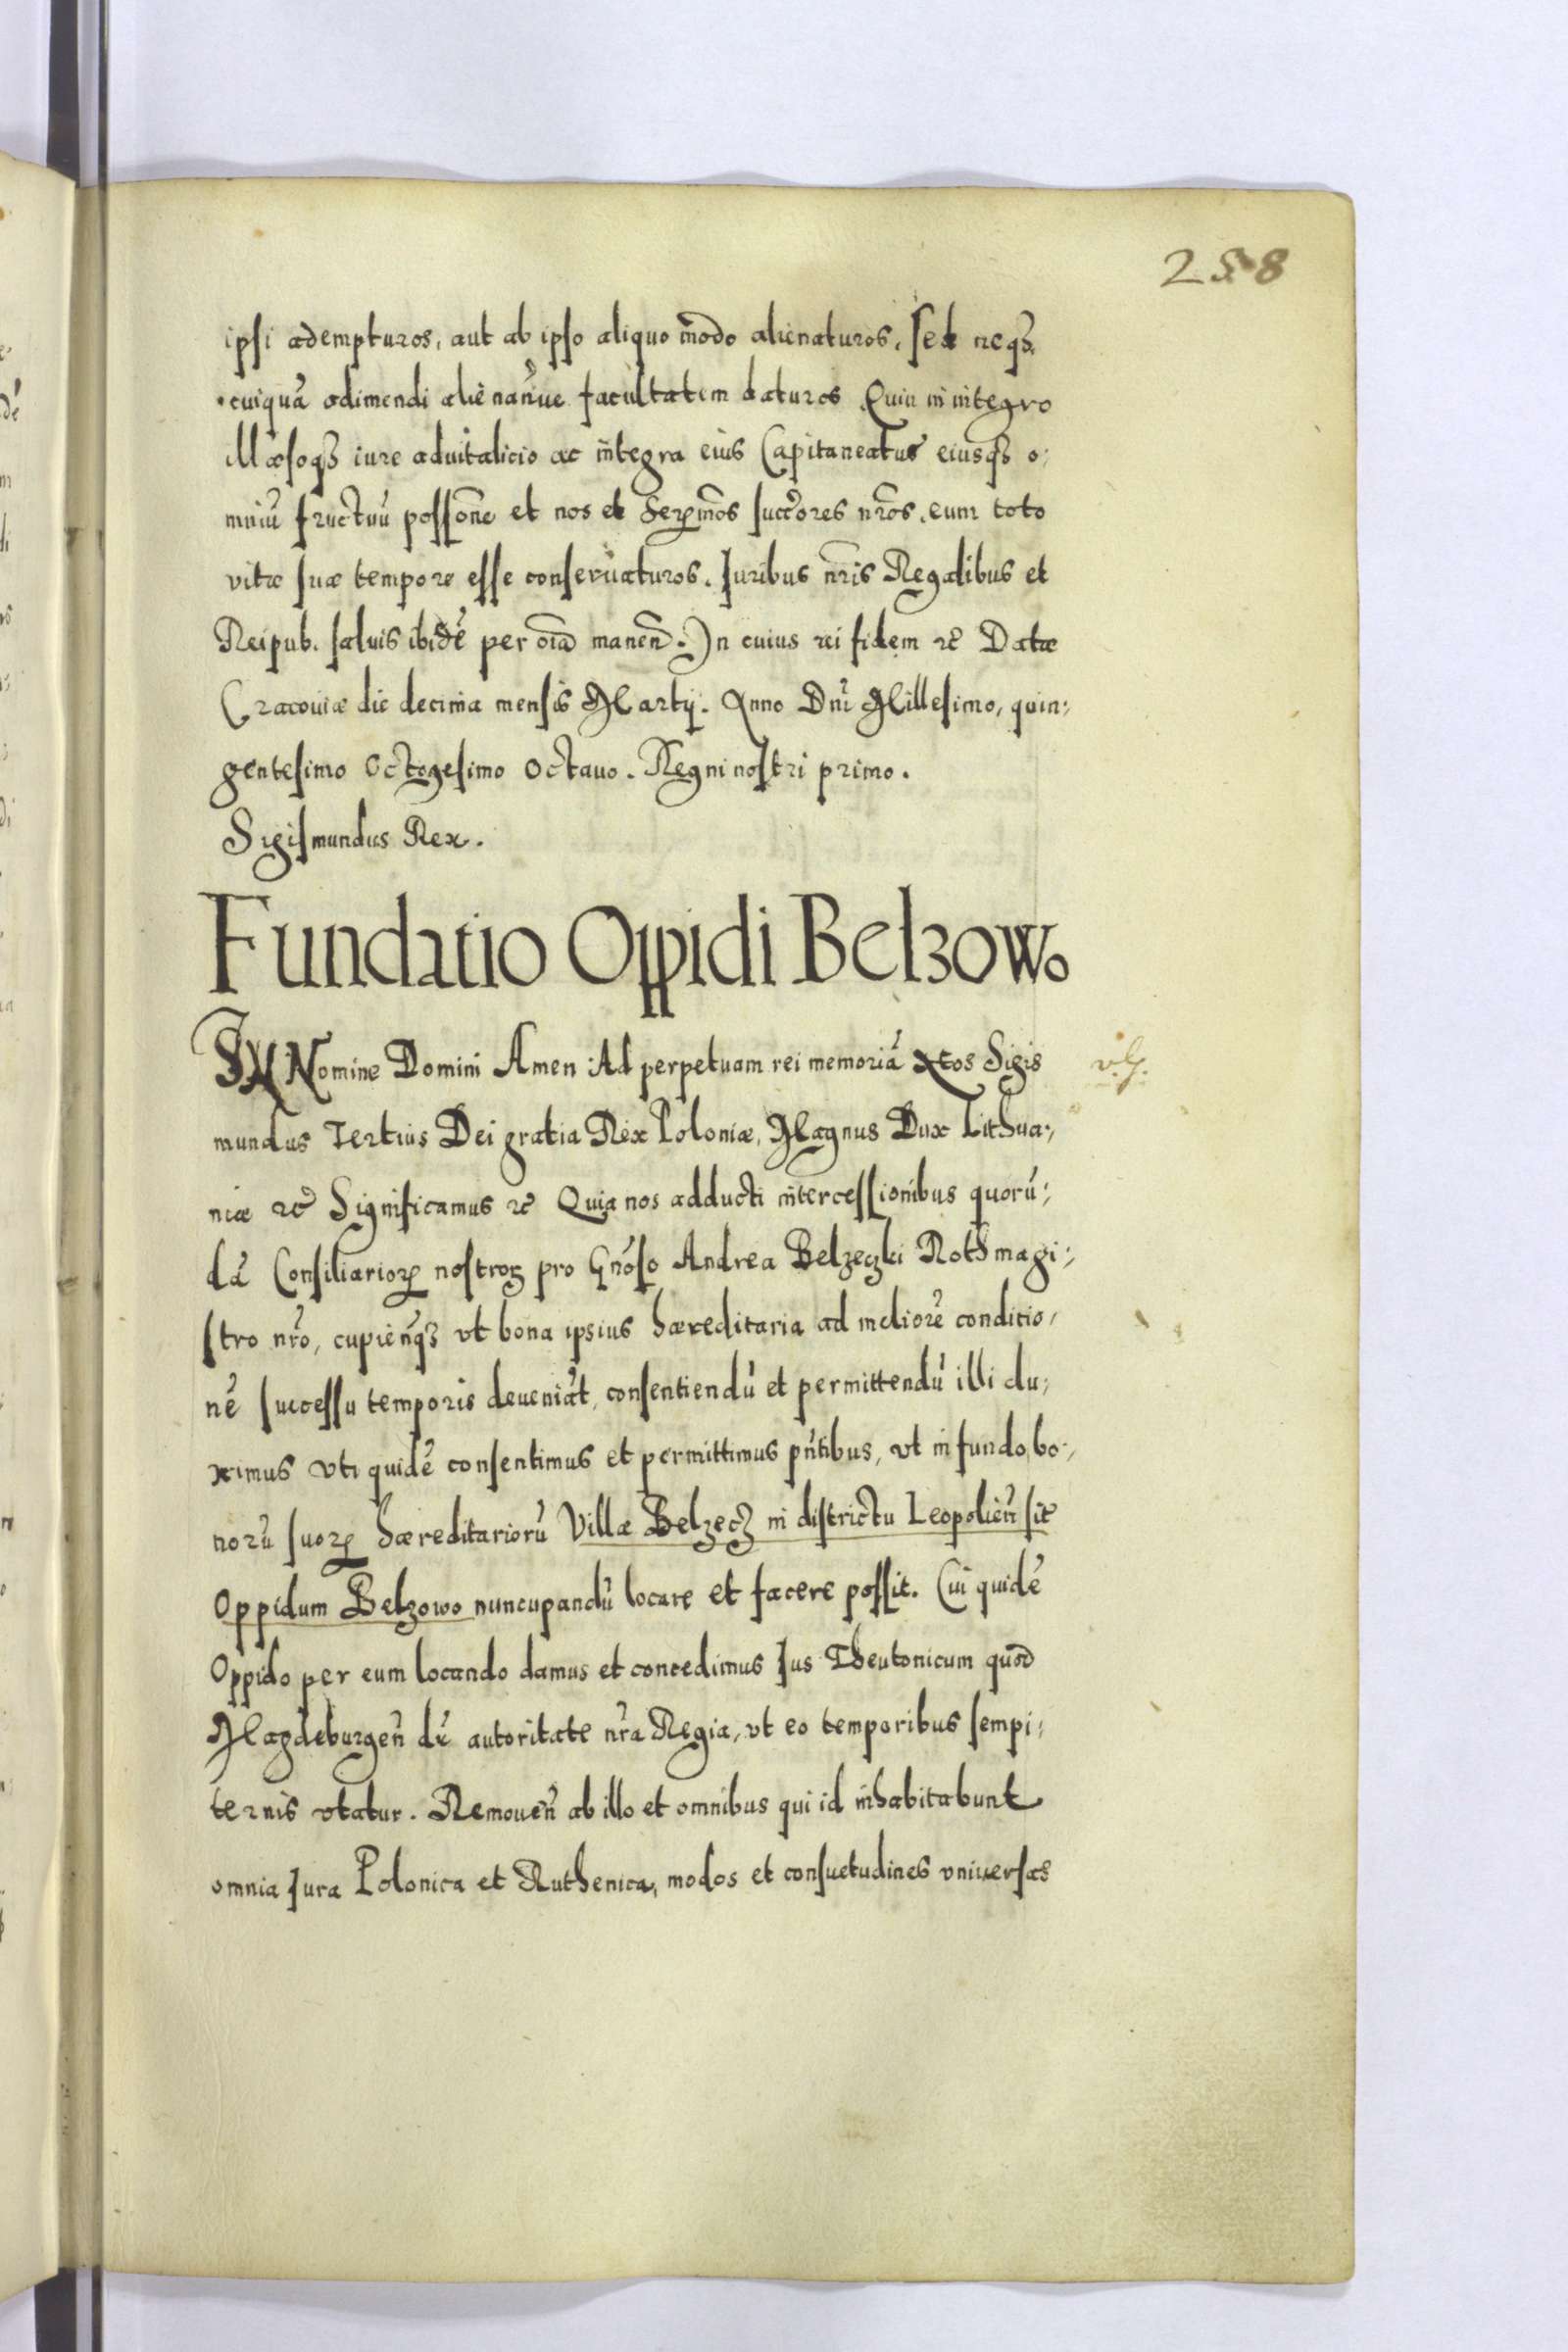 258
ipsi adempturos, aut ab ipso aliquo modo alienaturos. Sed neqꝫ
cuiquā adimendi aliēnan̄ve facultatem daturos Quin in integro
illæsoqꝫ iure aduitalicio ac integra eius Capitaneatus eiusqꝫ o:
mniū fructuū possōne et nos et Serꝫm̄os succ̄ores nr̄os, eum toto
vitæ suæ tempore esse conseruaturos. Iuribus nr̄is Regalibus et
Reipub. saluis ibidē per oīa manen̄. In cuius rei fidem ꝛc̄ Datæ
Cracouiæ die decima mensis Martij. Anno Dn̄i Millesimo, quin:
gentesimo Octogesimo Octauo. Regni nostri primo.
Sigismundus Rex.
Fundatio Oppidi Belzowo
IN Nomine Domini Amen Ad perpetuam rei memoriā Nos Sigis
mundus Tertius Dei gratia Rex Poloniæ, Magnus Dux Lithua:
niæ ꝛc̄ Significamus ꝛc̄ Quia nos adducti intercessionibus quorū:
dā Consiliarioꝝ nostroꝝ pro Gn̄oso Andrea Belzeczki Rothmagi:
stro nr̄o, cupien̄qꝫ vt bona ipsius hæreditaria ad meliorē conditio:
nē successu temporis deueniāt, consentiendū et permittendū illi du:
ximus vti quidē consentimus et permittimus pn̄tibus, vt in fundo bo:
norū suoꝝ hæreditariorū Villæ Belzecz in districtu Leopolien̄ sit
Oppidum Belzowo nuncupandū locare et facere possit. Cui quidē
Oppido per eum locando damus et concedimus Ius Theutonicum quod
Magdeburgen̄ de autoritate nr̄a Regia, vt eo temporibus sempi:
ternis vtatur. Remouen̄ ab illo et omnibus qui id inhabitabunt
omnia Iura Polonica et Ruthenica, modos et consuetudines vniuersas